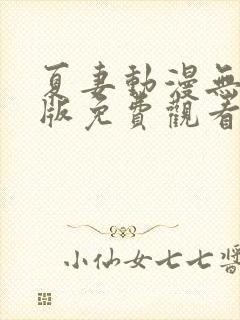 夏妻動漫無
版免費觀看
小仙女七七醬